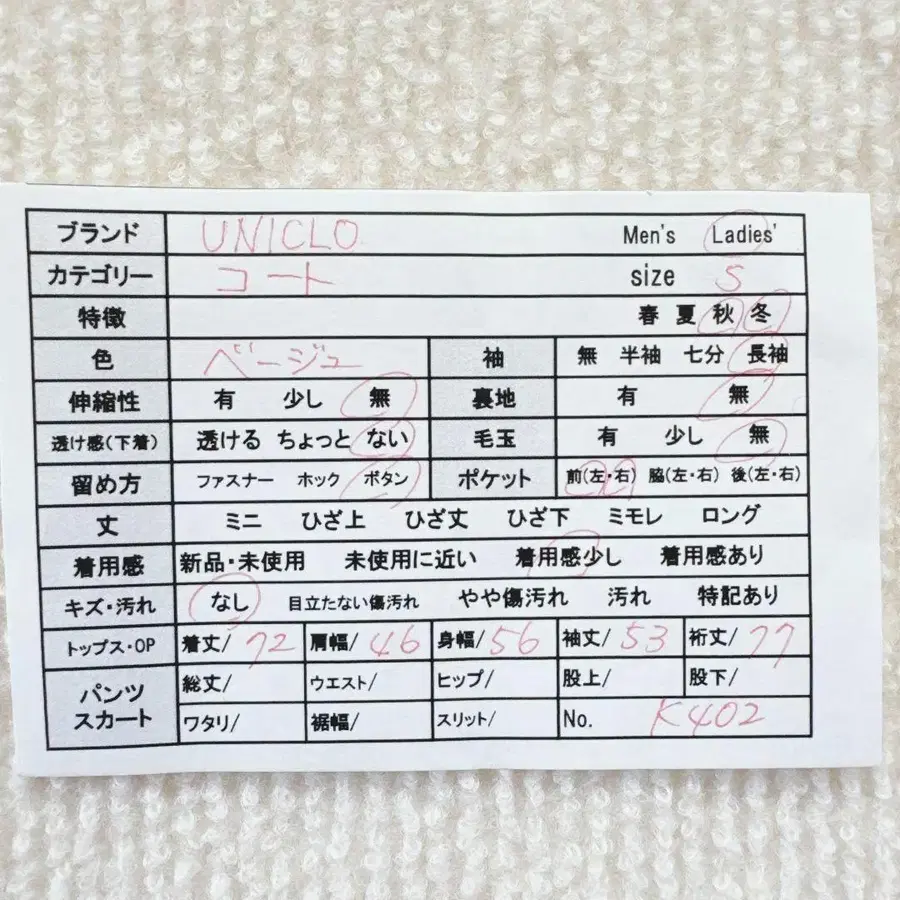 ブランド UNICLO Men's Ladies'
カテゴリー コート size S
特徴 春 夏 秋 冬
色 ベージュ 袖 無 半袖 七分 長袖
伸縮性 有 少し 無 裏地 有 無
透け感(下着) 透ける ちょっと ない 毛玉 有 少し 無
留め方 ファスナー ホック ボタン ポケット 前(左・右) 脇(左・右) 後(左・右)
丈 ミニ ひざ上 ひざ丈 ひざ下 ミモレ ロング
着用感 新品・未使用 未使用に近い 着用感少し 着用感あり
キズ・汚れ なし 目立たない傷汚れ やや傷汚れ 汚れ 特記あり
トップス・OP 着丈/ 72 肩幅/ 46 身幅/ 56 袖丈/ 53 裄丈/ 77
パンツ スカート 総丈/ ウエスト/ ヒップ/ 股上/ 股下/
ワタリ/ 裾幅/ スリット/ No. K402